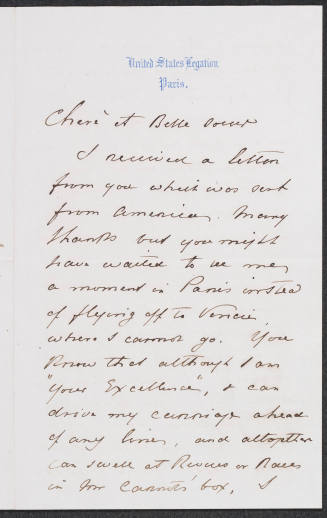 United States Legation
Paris.
Chère et Belle soeur
I received a letter
from you which was sent
from America. Many
thanks but you might
have waited to see me
a moment in Paris instead
of flying off to Venice
where I cannot go. You
know that although I am
"Your Excellence", & can
drive my carriage ahead
of any line, and altogether
can swell at Revues or Races
in Mr Carnot's box, I